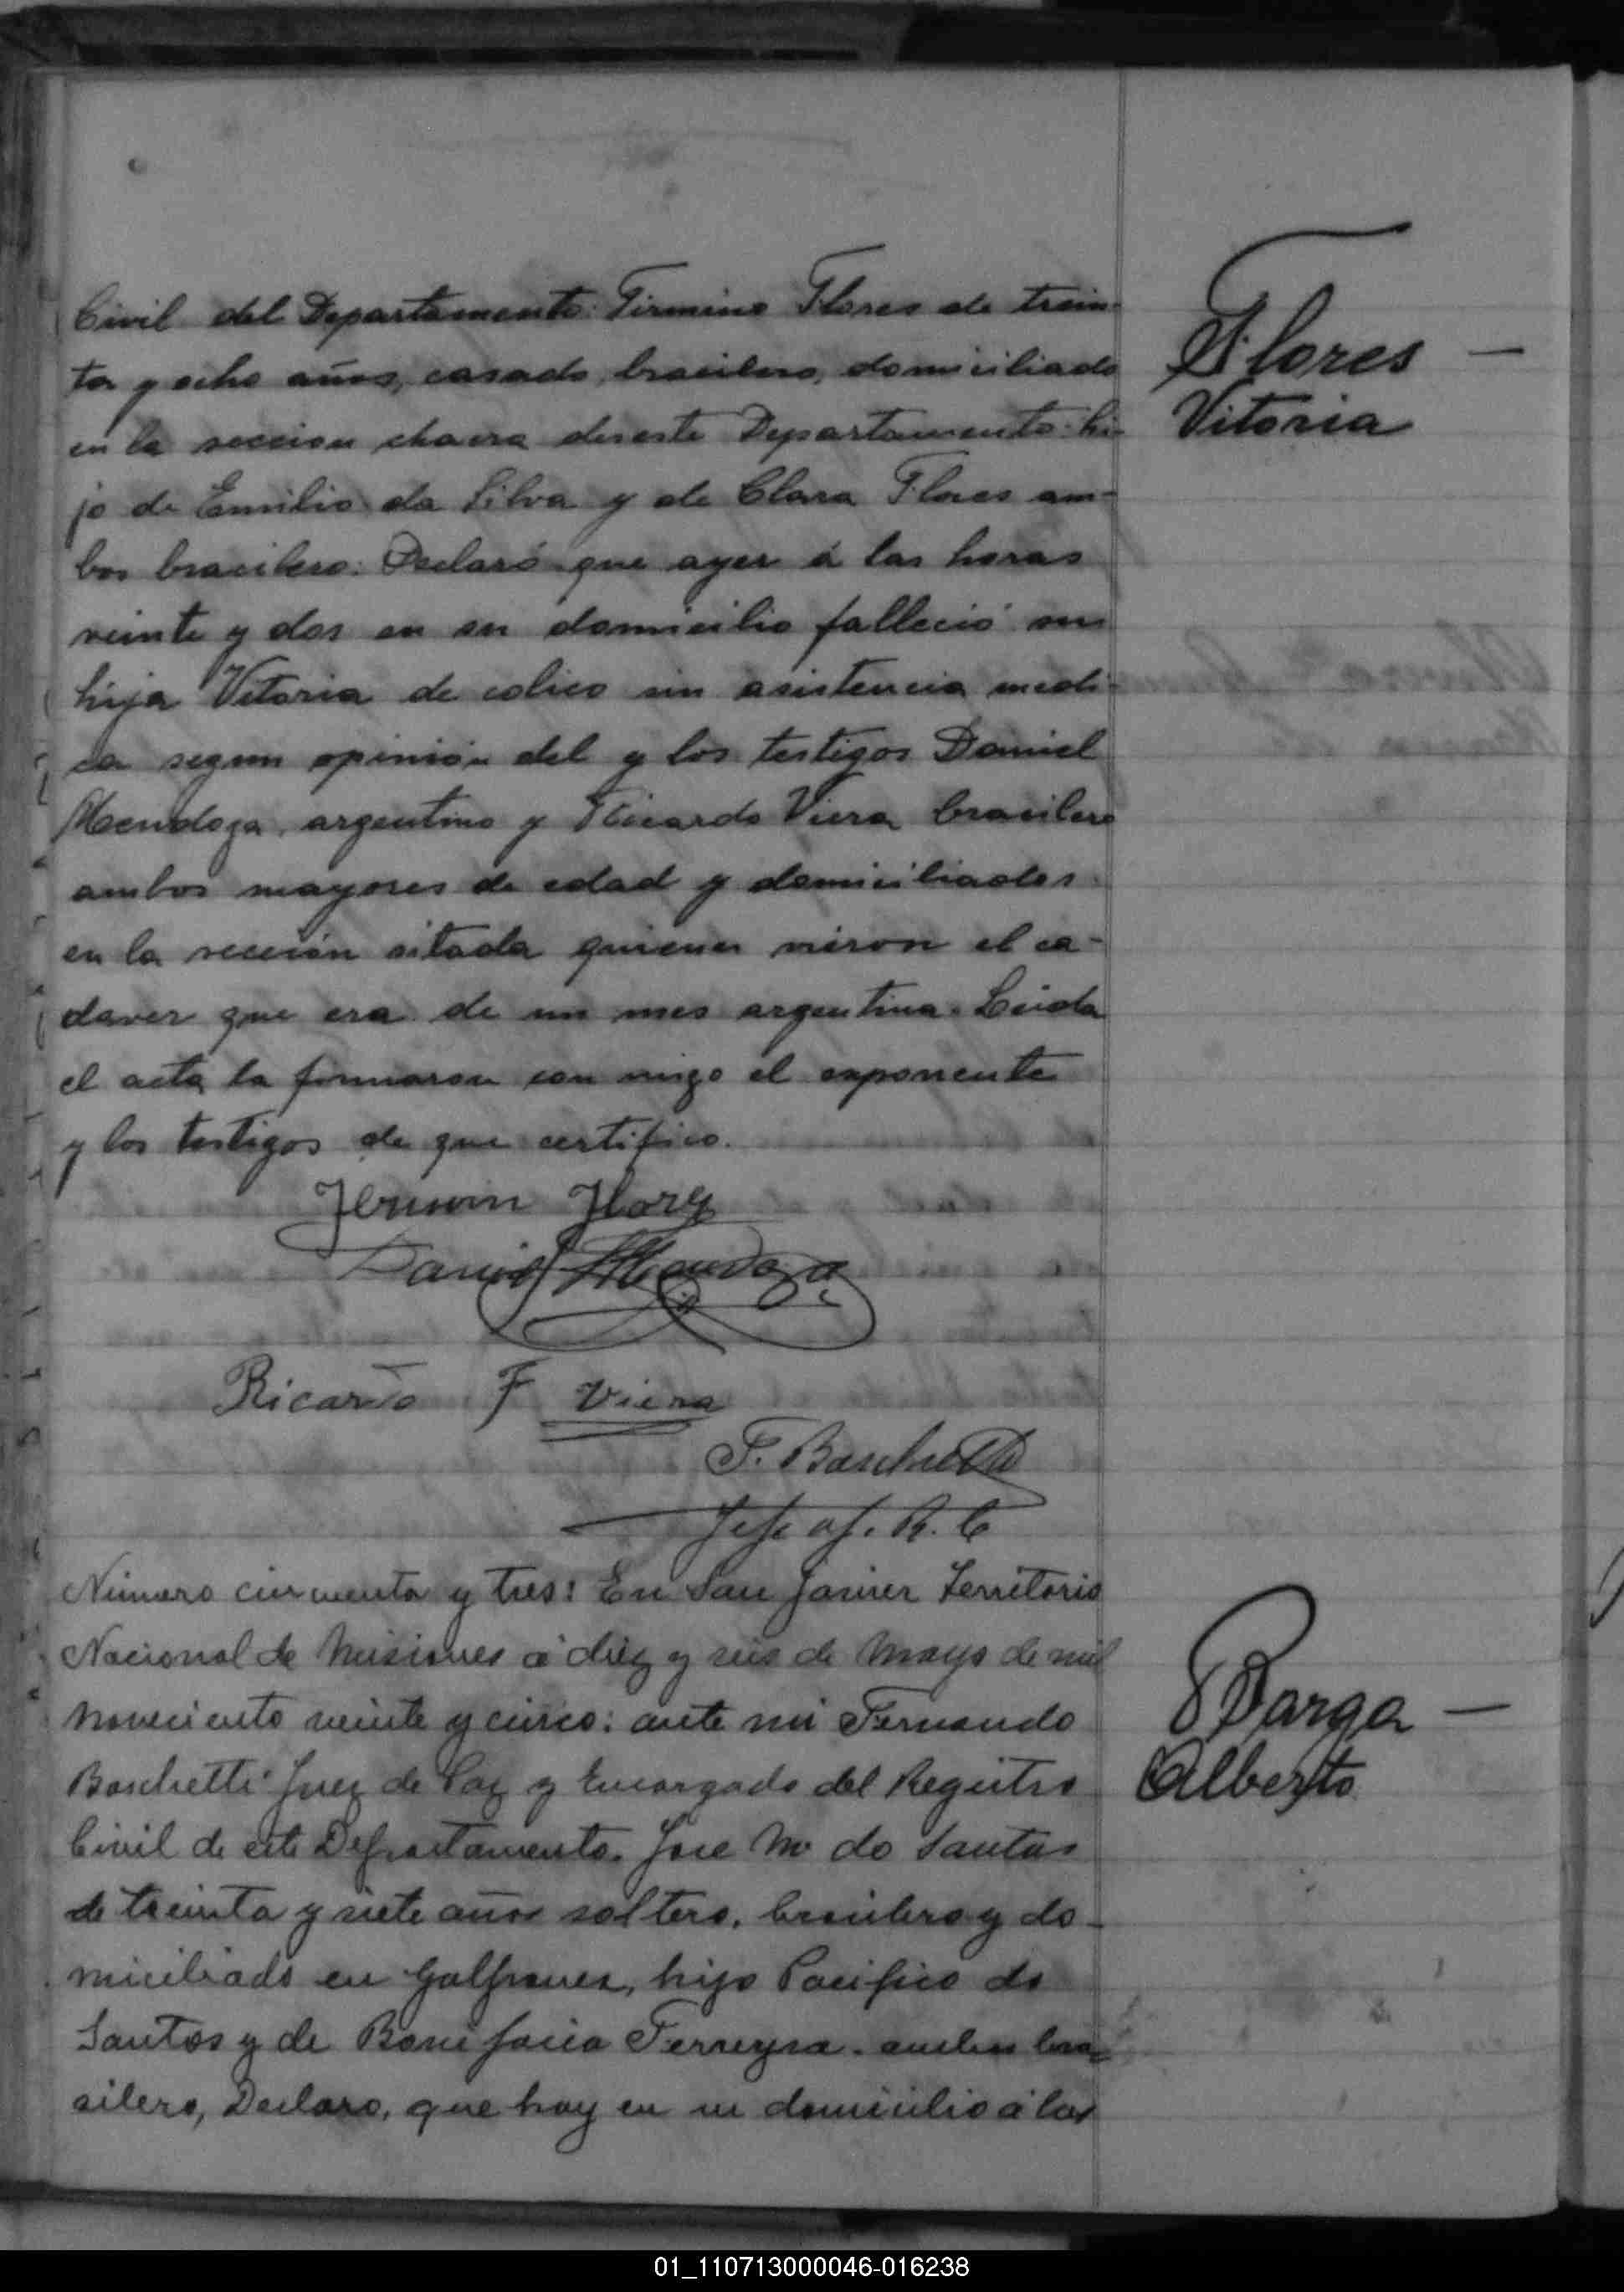 Civil del Departamento: Firmino Flores de trein-
ta y ocho años, casado, brasilero, domiciliado
en la seccion chacra de este Departamento hi-
jo de Emilio da Silva y de Clara Flores am-
bos brasilero: Declaró que ayer á las horas
veinte y dos en su domicilio falleció su
hija Vitoria de colico sin asistencia medi-
ca segun opinión del y los testigos Daniel
Mendoza, argentino y Ricardo Viera brasilero
ambos mayores de edad y domiciliados
en la sección sitada quienes vieron el ca-
daver que era de un mes argentina. Leida
el acta la firmaron con migo el exponente
y los testigos de que certifico.
Flores
Vitoria
Daniel Mendoza
Ricardo F Viera
F. Boschetti
Jefe of. R. C
Número cincuenta y tres: En San Javier Territorio
Nacional de Misiones á diez y seis de Mayo de mil
noveciento veinte y cinco: ante mi Fernando
Boschetti Juez de Paz y Encargado del Registro
Civil de este Departamento. Jose M. do Santos
de treinta y siete años soltero, brasilero y do-
miciliado en Galpones, hijo Pacifico do
Santos y de Bonifacia Ferreyra. ambos bra-
silero, Declaro, que hoy en su domicilio á las
Barga
Alberto
01_110713000046-016238